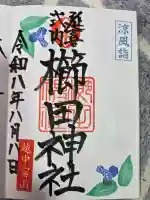 涼風詣
延喜式内
櫛田神社
令和八年八月八日
越中一宮